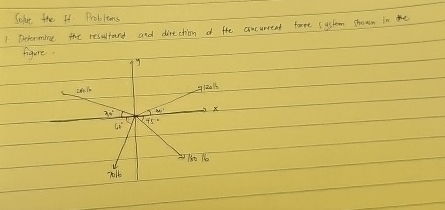 Solve the ff Problems
1. Determine the resultant and direction of the concurrent force system shown in the
figure.
y
120 lb
x
30°
60°
45°
70 lb
180 lb